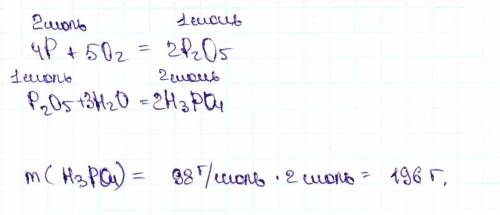 2моль 1моль
4P + 5O₂ = 2P₂O₅
1моль 2моль
P₂O₅+3H₂O = 2H₃PO₄
m(H₃PO₄) = 98 г/моль · 2 моль = 196 г.